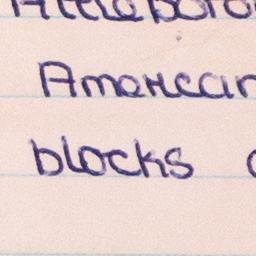 Attleboro
American
blocks